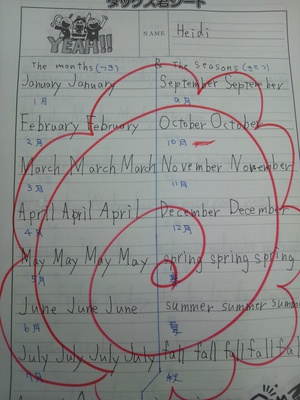 タックス君シート
YEAH!!
NAME Heidi
The months (つき) & The seasons (きせつ)
January January
1月
February February
2月
March March March
3月
April April April
4月
May May May May
5月
June June June
6月
July July July July
7月
September September
9月
October October
10月
November November
11月
December December
12月
spring spring spring
summer summer summer
夏
fall fall fall fall fall
秋